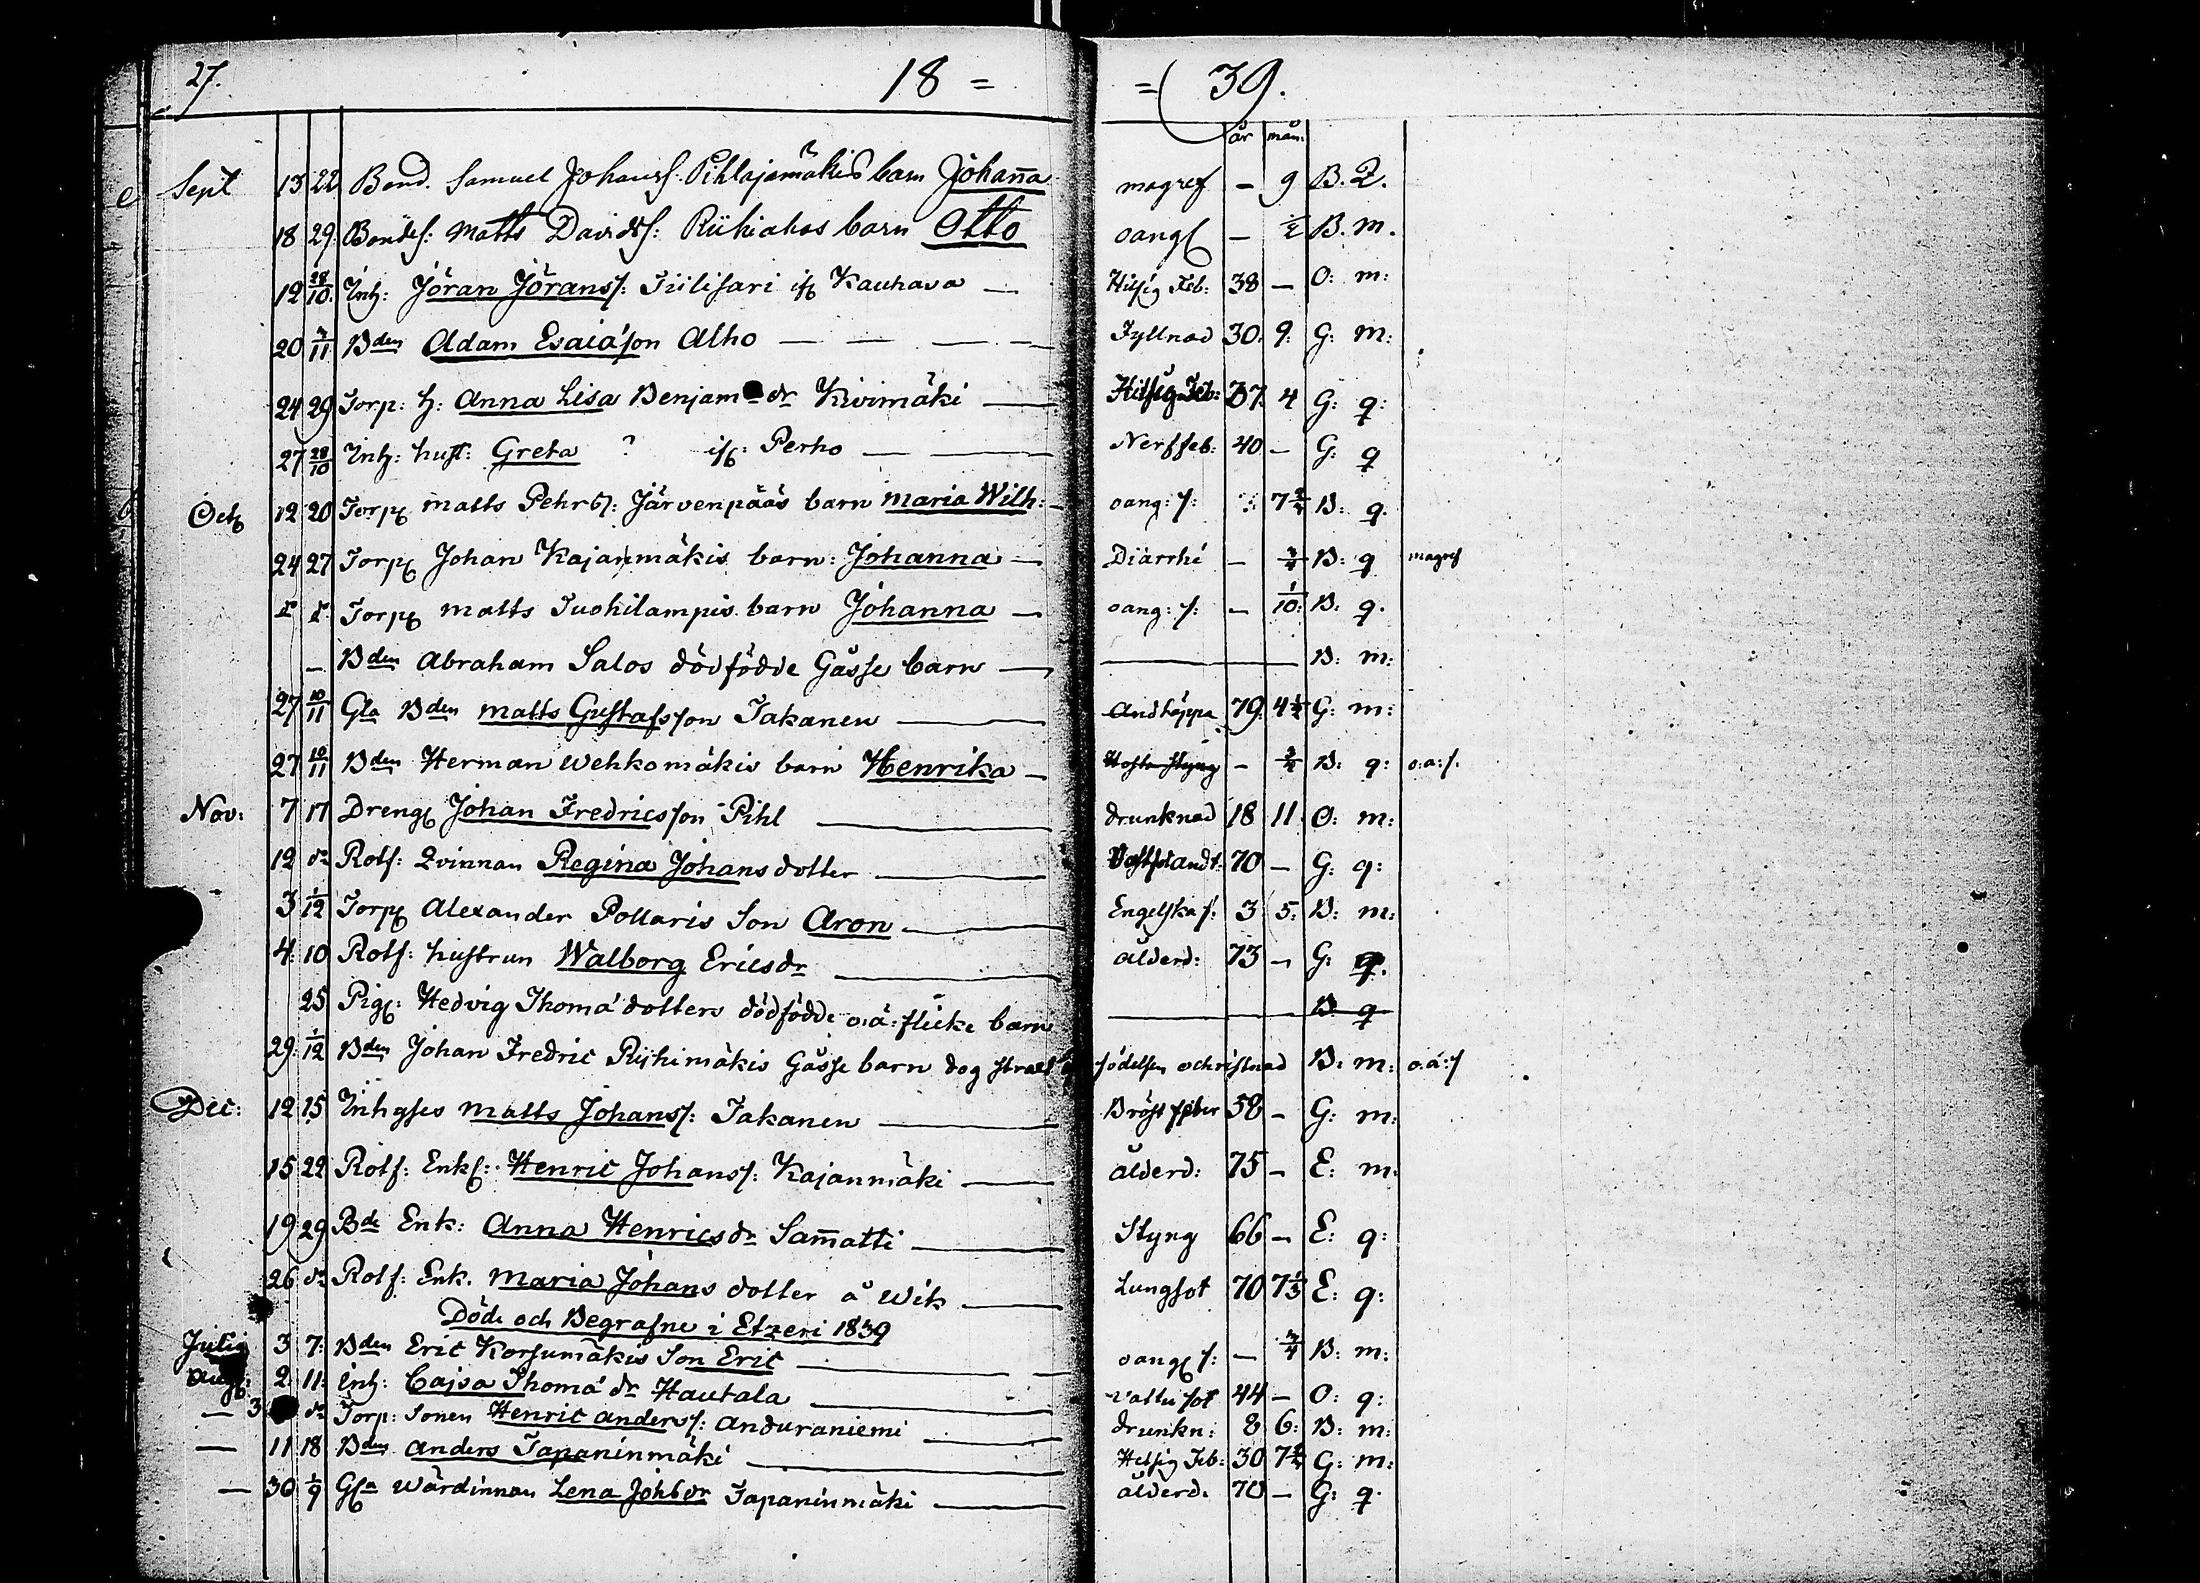 27. 18 = = 39.
år mån:
Sept 13 22 Bond. Samuel Johanss. Pihlajamäkis barn Johanna magref — 9 B. Q.
18 29. Bondes: Matts Davids: Riihiahos barn Otto oang — ½ B. m.
19 28/10. Inh: Jöran Jörans/: Tiilisari if Kauhava — Hitsig Feb: 38 — O: m:
20 3/11 Bden Adam Esaiason Alho — — — — Fyllnad 30. 9. G: m:
24 29 Torp: h: Anna Lisa Benjam dr Kivimäki — Hitsig Feb: 37. 4 G: q:
27 28/10 Inh: hust: Greta ? if: Perho — — Nerffeb: 40 — G: q
Oct 12 20 Torp Matts Pehrs/: Järvenpääs barn Maria Wilh: — oang: s: 7 B: q.
24 27 Torp Johan Kajanmäkis barn: Johanna — Diarrhé — 3/4 B: q magref
Torp Matts Tuohilampis barn Johanna — oang: s: — 1/10: B: q.
— Bden Abraham Salos dödfödde Gåsse barn — — B: m:
27 10/11 Gla Bden Matts Gustafsson Takanen — Andtäppa 79. 4½ G: m:
27 10/11 Bden Herman Wehkomäkis barn Henrika — — B: q: o:a:s.
Nov: 7 17 Dreng Johan Fredricsson Pihl — drunknad 18 11. O: m:
12 do Rotf: Qvinnan Regina Johansdotter — 70 — G: q:
3 1/12 Torp Alexander Pollaris Son Aron — Engelska s: 3 5: B: m:
4: 10 Rotf: hustrun Walborg Ericsdr — ålderd: 73 — G: q.
25 Pig: Hedvig Thomá dotters dödfödde o:ä: flicke barn — B: q
29: 1/12 Bden Johan Fredric Riihimäkis Gåsse barn dog straxt födelsen ochristnad B: m: o:ä:s
Dec: 12 15 Inhyses Matts Johans/: Takanen — Bröstfeber 58 — G: m:
15 22 Rotf: Enk: Henric Johans/: Kajanmäki — ålderd: 75 — E: m:
19 29 Bde Enk: Anna Henricsdr Sam̅atti — Styng 66 — E: q:
26 do Rotf: Enk. Maria Johansdotter å Wik — Lungsot 70 7 E: q:
Döde och Begrafne i Etzeri 1839
Julii 3 7: Bden Eric Korsumäkis Son Eric — oang s: — 3/4 B: m:
Aug: 2: 11: Inh: Cajsa Thomá dr Hautala — vattusot 44 — O: q:
— 3 do Torp: Sonen Henric Anders/: Anduraniemi — drunkn: 8 6: B: m:
— 11 18 Bden Anders Tapaninmäki — Hitsig Feb: 30 7 G: m:
— 30 1/9 Gla Wärdinnan Lena Johsdr Tapaninmäki — ålderd. 70 — G: q.